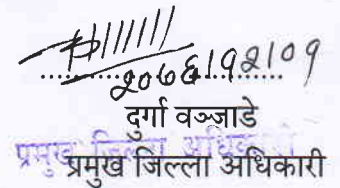 2066/9२/0९
दुर्गा वञ्जाडे
प्रमुख जिल्ला अधिकारी
प्रमुख जिल्ला अधिकारी